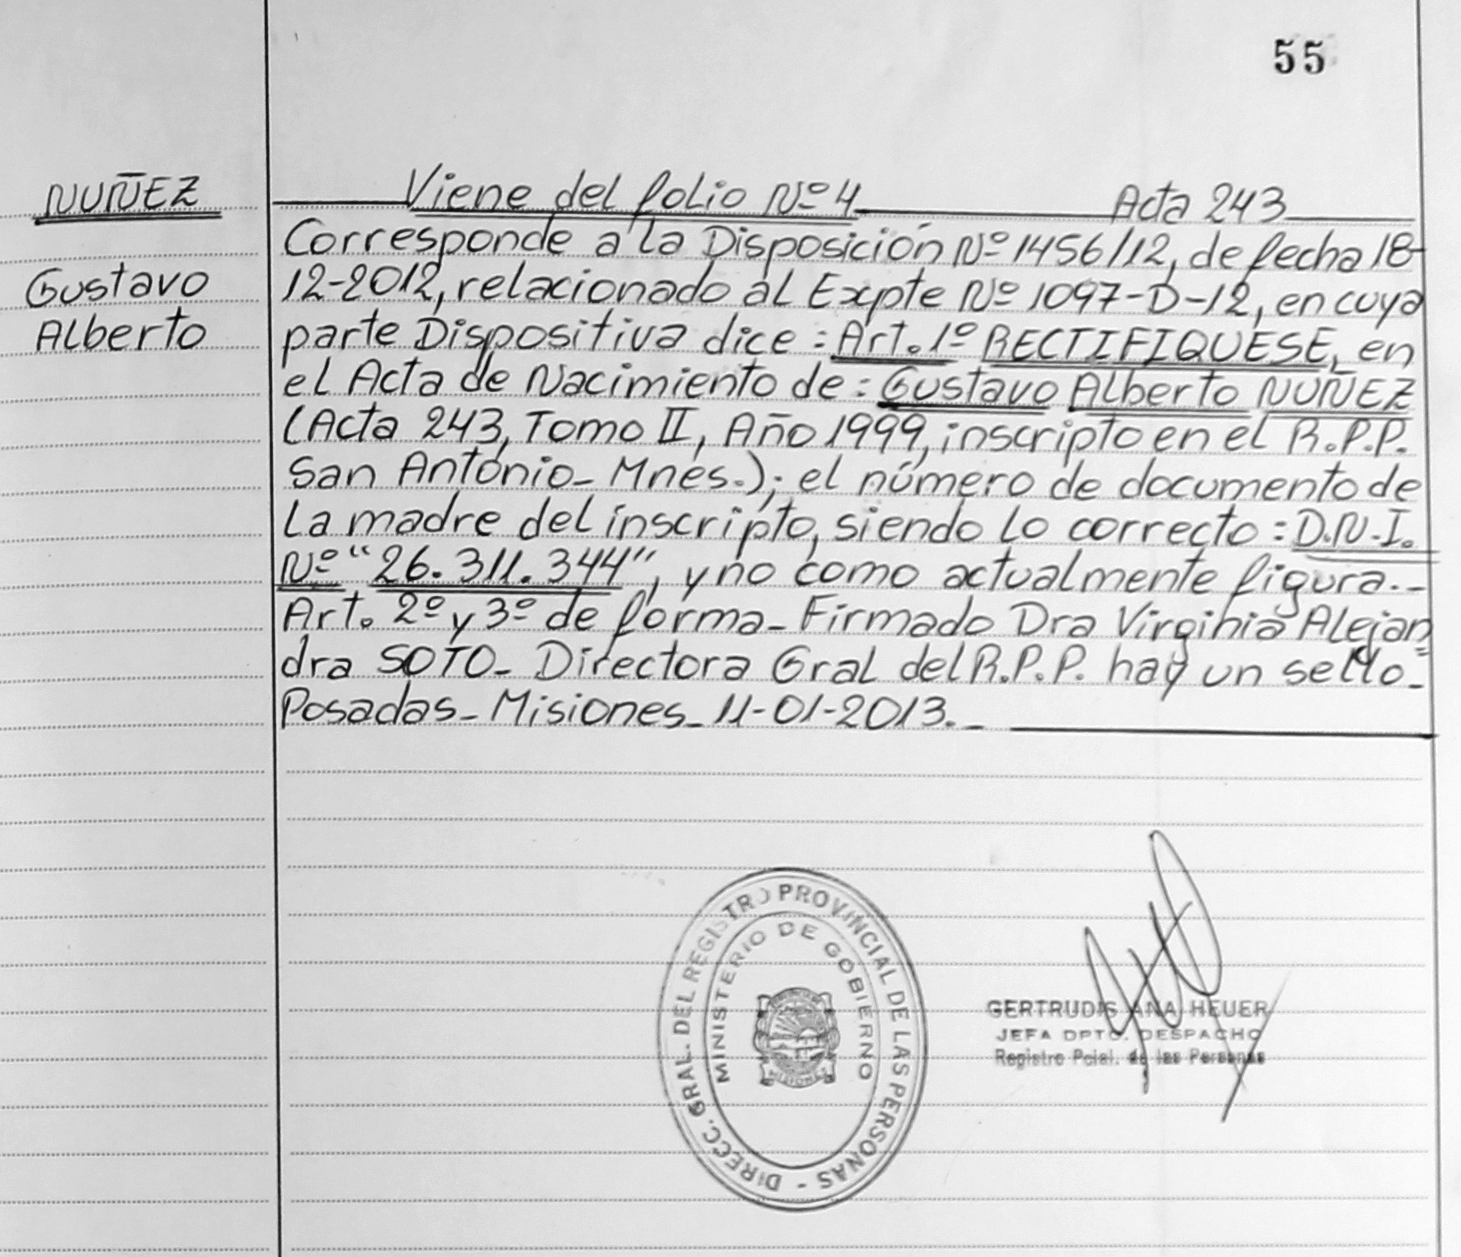 55
NUÑEZ
Gustavo
Alberto
Viene del folio Nº 4 Acta 243
Corresponde a la Disposición Nº 1456/12, de fecha 18-
12-2012, relacionado al Expte Nº 1097-D-12, en cuya
parte Dispositiva dice: Art. 1º RECTIFIQUESE, en
el Acta de Nacimiento de: Gustavo Alberto NUÑEZ
(Acta 243, Tomo II, Año 1999, inscripto en el R.P.P.
San Antonio- Mnes.); el número de documento de
La madre del inscripto, siendo lo correcto: D.N.I.
Nº "26.311.344", y no como actualmente figura.-
Art. 2º y 3º de forma- Firmado Dra Virginia Alejan
dra SOTO- Directora Gral del R.P.P. hay un sello-
Posadas- Misiones- 11-01-2013.-
DIRECC. GRAL. DEL REGISTRO PROVINCIAL DE LAS PERSONAS -
MINISTERIO DE GOBIERNO
MISIONES
GERTRUDIS ANA HEUER
JEFA DPTO. DESPACHO
Registro Pcial. de las Personas